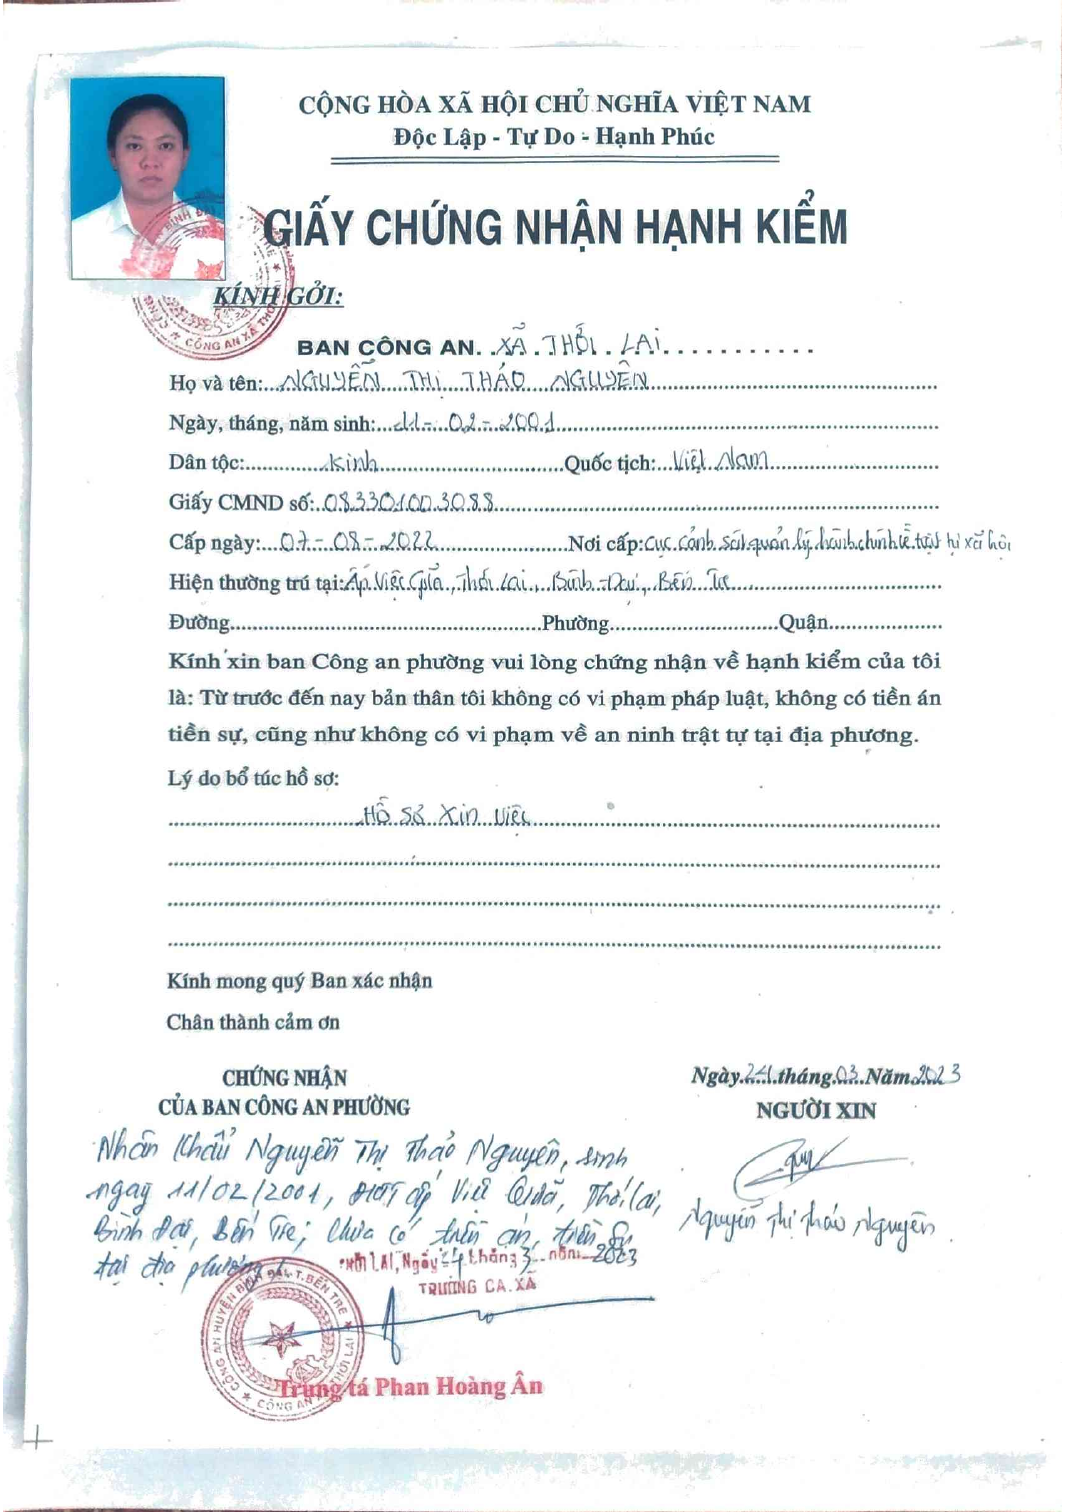 CỘNG HÒA XÃ HỘI CHỦ NGHĨA VIỆT NAM
Độc Lập - Tự Do - Hạnh Phúc
GIẤY CHỨNG NHẬN HẠNH KIỂM
KÍNH GỞI:
CÔNG AN XÃ THỚI LAI
BAN CÔNG AN. XÃ THỚI LAI
Họ và tên: NGUYỄN THỊ THẢO NGUYÊN
Ngày, tháng, năm sinh: 11-02-2001
Dân tộc: Kinh Quốc tịch: Việt Nam
Giấy CMND số: 083301003088
Cấp ngày: 07-08-2022 Nơi cấp: Cục cảnh sát quản lý hành chính về trật tự xã hội
Hiện thường trú tại: Ấp Việc Giữa, Thới Lai, Bình Đại, Bến Tre
Đường Phường Quận
Kính xin ban Công an phường vui lòng chứng nhận về hạnh kiểm của tôi
là: Từ trước đến nay bản thân tôi không có vi phạm pháp luật, không có tiền án
tiền sự, cũng như không có vi phạm về an ninh trật tự tại địa phương.
Lý do bổ túc hồ sơ:
Hồ Sơ Xin Việc
Kính mong quý Ban xác nhận
Chân thành cảm ơn
CHỨNG NHẬN
CỦA BAN CÔNG AN PHƯỜNG
Ngày 24 tháng 03 Năm 2023
NGƯỜI XIN
Nhân Khẩu Nguyễn Thị Thảo Nguyên, sinh
ngày 11/02/2001, ấp Việc Giữa, Thới Lai,
Bình Đại, Bến Tre; Chưa có tiền án, tiền sự
tại địa phương
Nguyễn Thị Thảo Nguyên
THỚI LAI, Ngày 24 tháng 3 năm 2023
TRƯỞNG CA.XÃ
CÔNG AN HUYỆN BÌNH ĐẠI-T.BẾN TRE
CÔNG AN XÃ THỚI LAI
Trung tá Phan Hoàng Ân